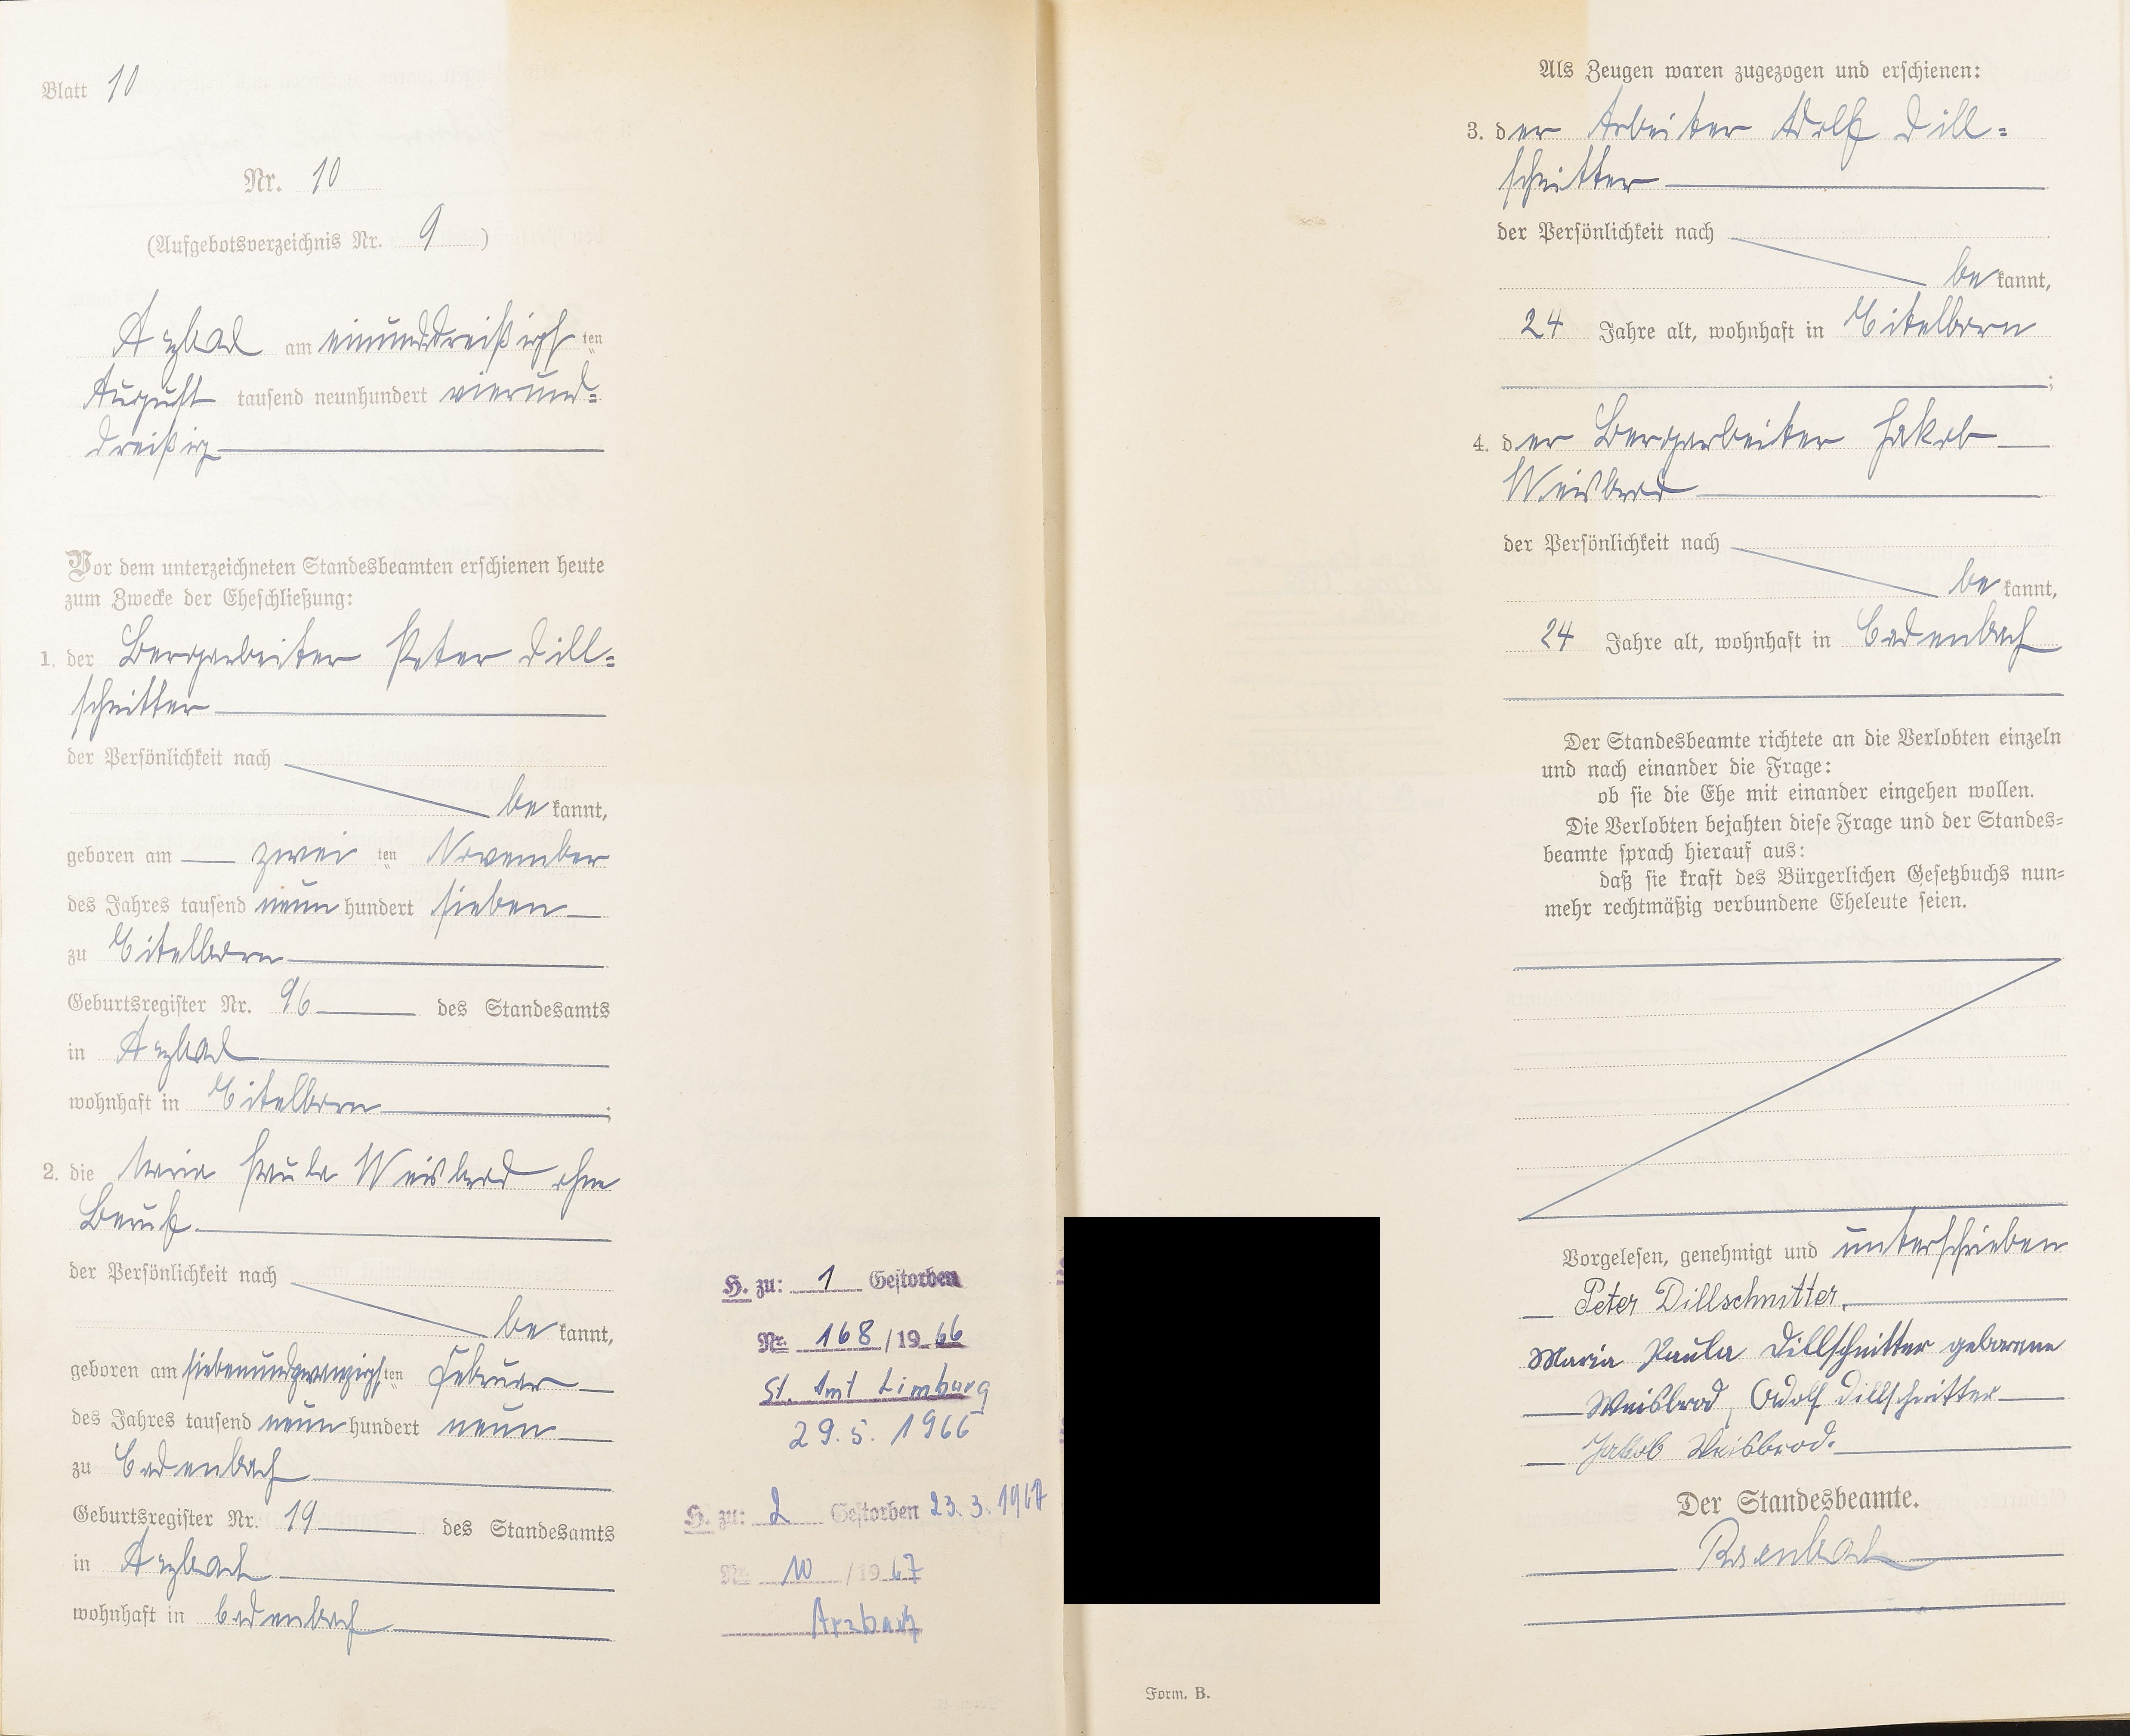 Blatt 10
Nr. 10
(Aufgebotsverzeichnis Nr. 9)
Arzbach am einunddreißigsten
August tausend neunhundert vierund=
dreißig
Vor dem unterzeichneten Standesbeamten erschienen heute
zum Zwecke der Eheschließung:
1. der Bergarbeiter Peter Dill=
schnitter
der Persönlichkeit nach
bekannt,
geboren am zweiten November
des Jahres tausend neunhundert sieben
zu Eitelborn
Geburtsregister Nr. 96 des Standesamts
in Arzbach
wohnhaft in Eitelborn;
2. die Maria Paula Weisbrod ohne
Beruf
der Persönlichkeit nach
bekannt,
geboren am siebenundzwanzigsten Februar
des Jahres tausend neunhundert neun
zu Cadenbach
Geburtsregister Nr. 19 des Standesamts
in Arzbach
wohnhaft in Cadenbach
H. zu: 1 Gestorben
Nr. 168/1966
St. Amt Limburg
29.5.1966
H. zu: 2 Gestorben 23.3.1967
Nr. 10/1967
Arzbach
Als Zeugen waren zugezogen und erschienen:
3. der Arbeiter Adolf Dill=
schnitter
der Persönlichkeit nach
bekannt,
24 Jahre alt, wohnhaft in Eitelborn
;
4. der Bergarbeiter Jakob
Weisbrod
der Persönlichkeit nach
bekannt,
24 Jahre alt, wohnhaft in Cadenbach
Der Standesbeamte richtete an die Verlobten einzeln
und nach einander die Frage:
ob sie die Ehe mit einander eingehen wollen.
Die Verlobten bejahten diese Frage und der Standes=
beamte sprach hierauf aus:
daß sie kraft des Bürgerlichen Gesetzbuchs nun=
mehr rechtmäßig verbundene Eheleute seien.
Vorgelesen, genehmigt und unterschrieben
Peter Dillschnitter,
Maria Paula Dillschnitter geborene
Weisbrod, Adolf Dillschnitter
Jakob Weisbrod.
Der Standesbeamte.
Rosenbach
Form. B.